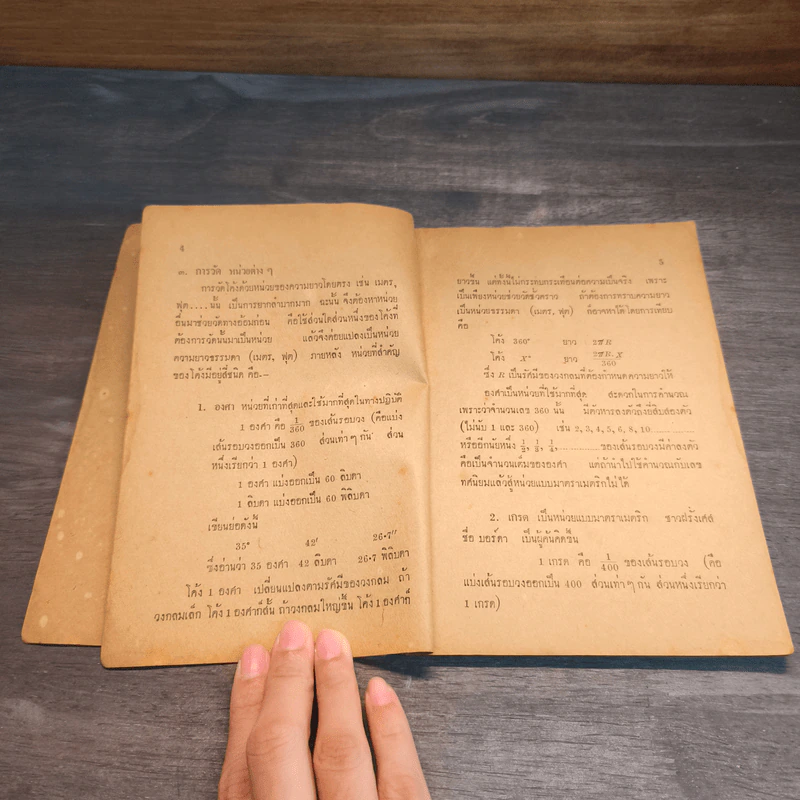 4
๓. การวัด หน่วยต่าง ๆ
การวัดโค้งด้วยหน่วยของความยาวโดยตรง เช่น เมตร,
ฟุต....นั้น เป็นการยากลำบากมาก ฉะนั้น จึงต้องหาหน่วย
อื่นมาช่วยวัดทางอ้อมก่อน คือใช้ส่วนใดส่วนหนึ่งของโค้งที่
ต้องการวัดนั้นมาเป็นหน่วย แล้วจึงค่อยแปลงเป็นหน่วย
ความยาวธรรมดา (เมตร, ฟุต) ภายหลัง หน่วยที่สำคัญ
ของโค้งมีอยู่สี่ชนิด คือ.—
1. องศา หน่วยที่เก่าที่สุดและใช้มากที่สุดในทางปฏิบัติ
1 องศา คือ 1/360 ของเส้นรอบวง (คือแบ่ง
เส้นรอบวงออกเป็น 360 ส่วนเท่า ๆ กัน ส่วน
หนึ่งเรียกว่า 1 องศา)
1 องศา แบ่งออกเป็น 60 ลิบดา
1 ลิบดา แบ่งออกเป็น 60 พิลิบดา
เขียนย่อดังนี้
35° 42′ 26·7″
ซึ่งอ่านว่า 35 องศา 42 ลิบดา 26·7 พิลิบดา
โค้ง 1 องศา เปลี่ยนแปลงตามรัศมีของวงกลม ถ้า
วงกลมเล็ก โค้ง 1 องศาก็สั้น ถ้าวงกลมใหญ่ขึ้น โค้ง 1 องศาก็
5
ยาวขึ้น แต่ทั้งนี้ไม่กระทบกระเทือนต่อความเป็นจริง เพราะ
เป็นเพียงหน่วยช่วยวัดชั่วคราว ถ้าต้องการทราบความยาว
เป็นหน่วยธรรมดา (เมตร, ฟุต) ก็อาจหาได้โดยการเทียบ
คือ
โค้ง 360° ยาว 2πR
โค้ง X° ยาว 2πR.X/360
ซึ่ง R เป็นรัศมีของวงกลมที่ต้องกำหนดความยาวให้
องศาเป็นหน่วยที่ใช้มากที่สุด สะดวกในการคำนวณ
เพราะว่าจำนวนเลข 360 นั้น มีตัวหารลงตัวถึงยี่สิบสองตัว
(ไม่นับ 1 และ 360) เช่น 2, 3, 4, 5, 6, 8, 10..........
หรืออีกนัยหนึ่ง 1/2, 1/3, 1/4,..........ของเส้นรอบวงมีค่าลงตัว
คือเป็นจำนวนเต็มขององศา แต่ถ้านำไปใช้คำนวณกับเลข
ทศนิยมแล้วสู้หน่วยแบบมาตราเมตริกไม่ได้
2. เกรด เป็นหน่วยแบบมาตราเมตริก ชาวฝรั่งเศส
ชื่อ บอร์ดา เป็นผู้คิดค้นขึ้น
1 เกรด คือ 1/400 ของเส้นรอบวง (คือ
แบ่งเส้นรอบวงออกเป็น 400 ส่วนเท่า ๆ กัน ส่วนหนึ่งเรียกว่า
1 เกรด)